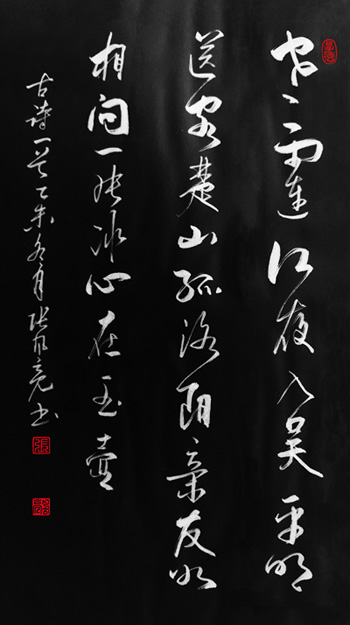 寒雨連江夜入吴平明
送客楚山孤洛阳亲友如
相问一片冰心在玉壶
古诗一首乙未冬月张亮书
張